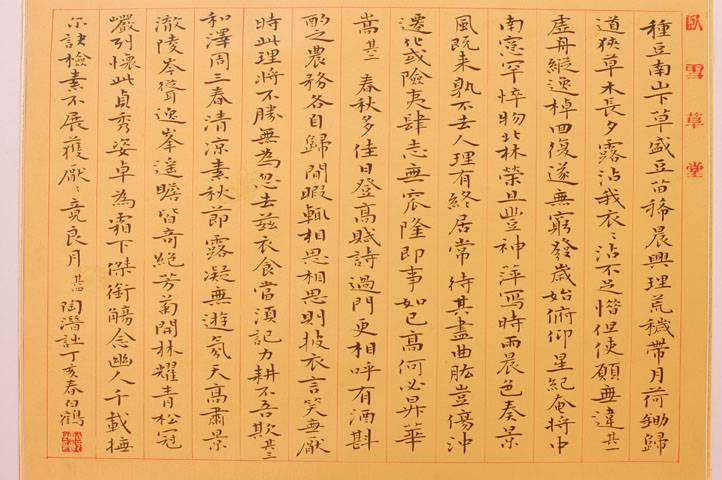 臥雪草堂
種豆南山下草盛豆苗稀晨興理荒穢帶月荷鋤歸
道狹草木長夕露沾我衣〻沾不足惜但使願無違其一
虛舟縱逸棹回復遂無窮發歲始俯仰星紀奄將中
南窓罕悴物北林榮且豐神萍寫時雨晨色奏景
風既来孰不去人理有終居常待其盡曲肱豈傷沖
遷化或險夷肆志無窊隆即事如已高何必昇華
嵩其二 春秋多佳日登高賦詩過門更相呼有酒斟
酌之農務各自歸閒暇輒相思相思則披衣言笑無厭
時此理將不勝無為忽去茲衣食當須記力耕不吾欺其三
和澤周三春清凉素秋節露凝無遊氛天高肅景
澈陵岑聳逸峯遥瞻皆奇絕芳菊開林耀青松冠
巖列懷此貞秀姿卓為霜下傑銜觴念幽人千載撫
尔訣檢素不展獲厭〻竟良月其四 陶潛詩丁亥春白鶴